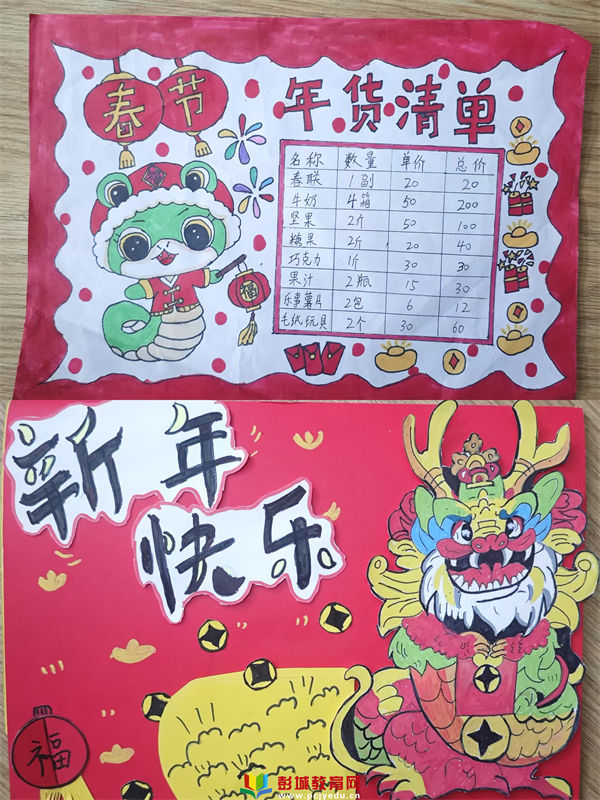 春节
年货清单
名称 数量 单价 总价
春联 1副 20 20
牛奶 4箱 50 200
坚果 2斤 50 100
糖果 2斤 20 40
巧克力 1斤 30 30
果汁 2瓶 15 30
乐事薯片 2包 6 12
毛绒玩具 2个 30 60
福
新年
快乐
福
彭城教育网
www.pcjyedu.cn